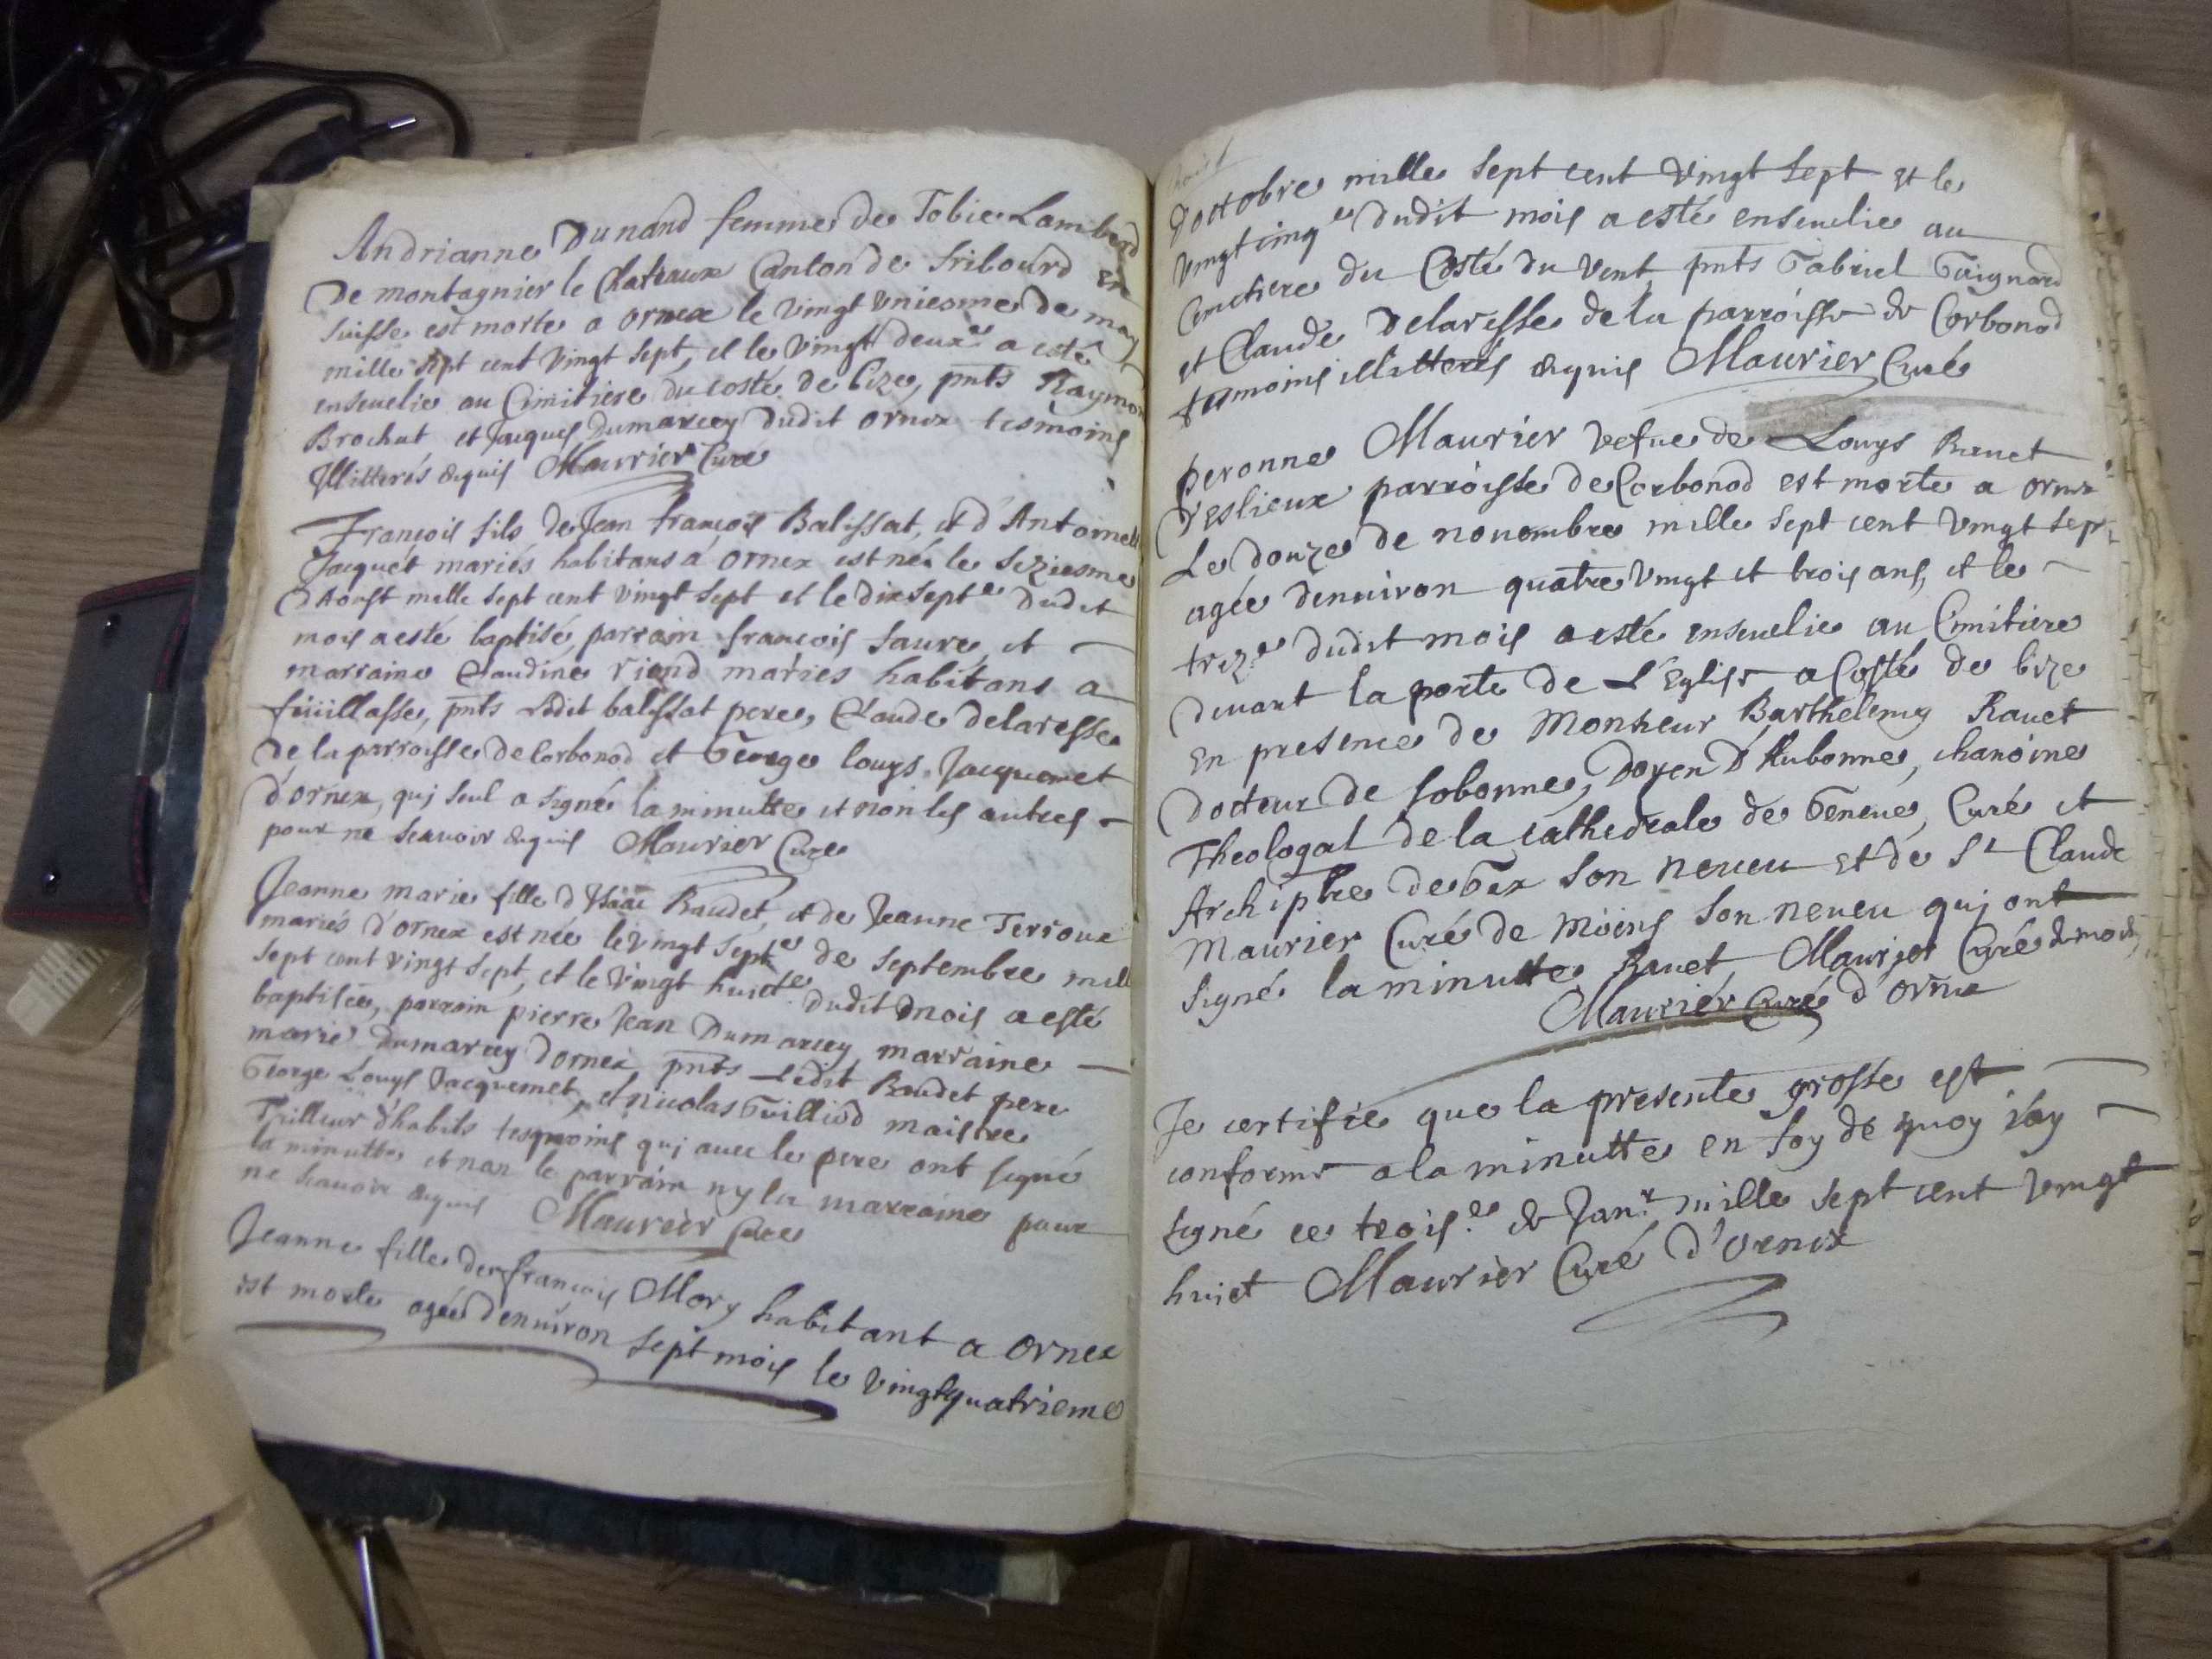 Andrianne Dunand femme de Tobie Lamberd
De montagnier le Chateaux Canton de fribourd en
suisse est morte a ornex le vingt uniesme de may
mille sept cent vingt sept, et le vingt deuxe a esté
enseuelie au Cimitiere du costé de bize, pnts Raymon
Brochut et Jacques Dumarcey dudit ornex tesmoins
Illitterés requis Maurrier Curé
François fils de Jean françois Balissat, et d'Antoinette
Jacquét mariés habitans a ornex est né le seziesme
d'Aoust mille sept cent vingt sept et le dix septe dudit
mois a esté baptisé, parrain françois saure, et
marraine Claudine riond mariés habitans a
fuillasse, pnts ledit balissat pere, Claude delaresse
de la parroisse de Corbonod et George louys Jacquemet
d'ornex, qui seul a signé la minutte et non les autres
pour ne sçauoir requis Maurier Cure
Jeanne marie fille d'Isaac Baudet, et de Jeanne Terroux
mariés d'ornex est née le vingt septe de septembre mille
sept cent vingt sept, et le vingt huicte dudit mois a esté
baptisée, parrain pierre Jean Dumarcey marraine
marie dumarcey d'ornex pnts Ledit Baudet pere
George Louys Jacquemet, et nicolas Guilliod maistre
Tailleur d'habits tesmoins qui auec le pere ont signé
la minutte et non le parrain ny la marraine pour
ne scauoir requis Maurier Cure
Jeanne fille de françois Mory habitant a ornex
est morte agée d'enuiron sept mois le vingt quatrieme
d'octobre mille sept cent vingt sept et le
vingt cinqe dudit mois a esté enseuelie au
Cimetiere du Costé du vent, pnts Gabriel Guignard
et Claude Delaresse de la parroisse de Corbonod
temoins illitterés requis Maurier Curé
peronne Maurier vefue de Louys Rauet
d'eslieux parroisse de Corbonod est morte a ornex
Le douze de nouembre mille sept cent vingt sept
agée denuiron quatre vingt et trois ans, et le
treze dudit mois a esté enseuelie au Cimitiere
deuant la porte de L'Eglise a Costé de bize
En presence de Monsieur Barthelemy Rauet
docteur de sobonne, Doyen d'Aubonne, chanoine
Theologal de la cathedrale de Geneue, Curé et
Archiptre de Gex son neueu et de Sr Claude
Maurier Curé de Moëns son neueu qui ont
signé la minutte Rauet, Maurier Curé de moens
Maurier Curé d'ornex
Je certifie que la presente grosse est
conforme a la minutte en foy de quoy i'ay
signé ce troise de Janr mille sept cent vingt
huict Maurier Curé d'Ornex